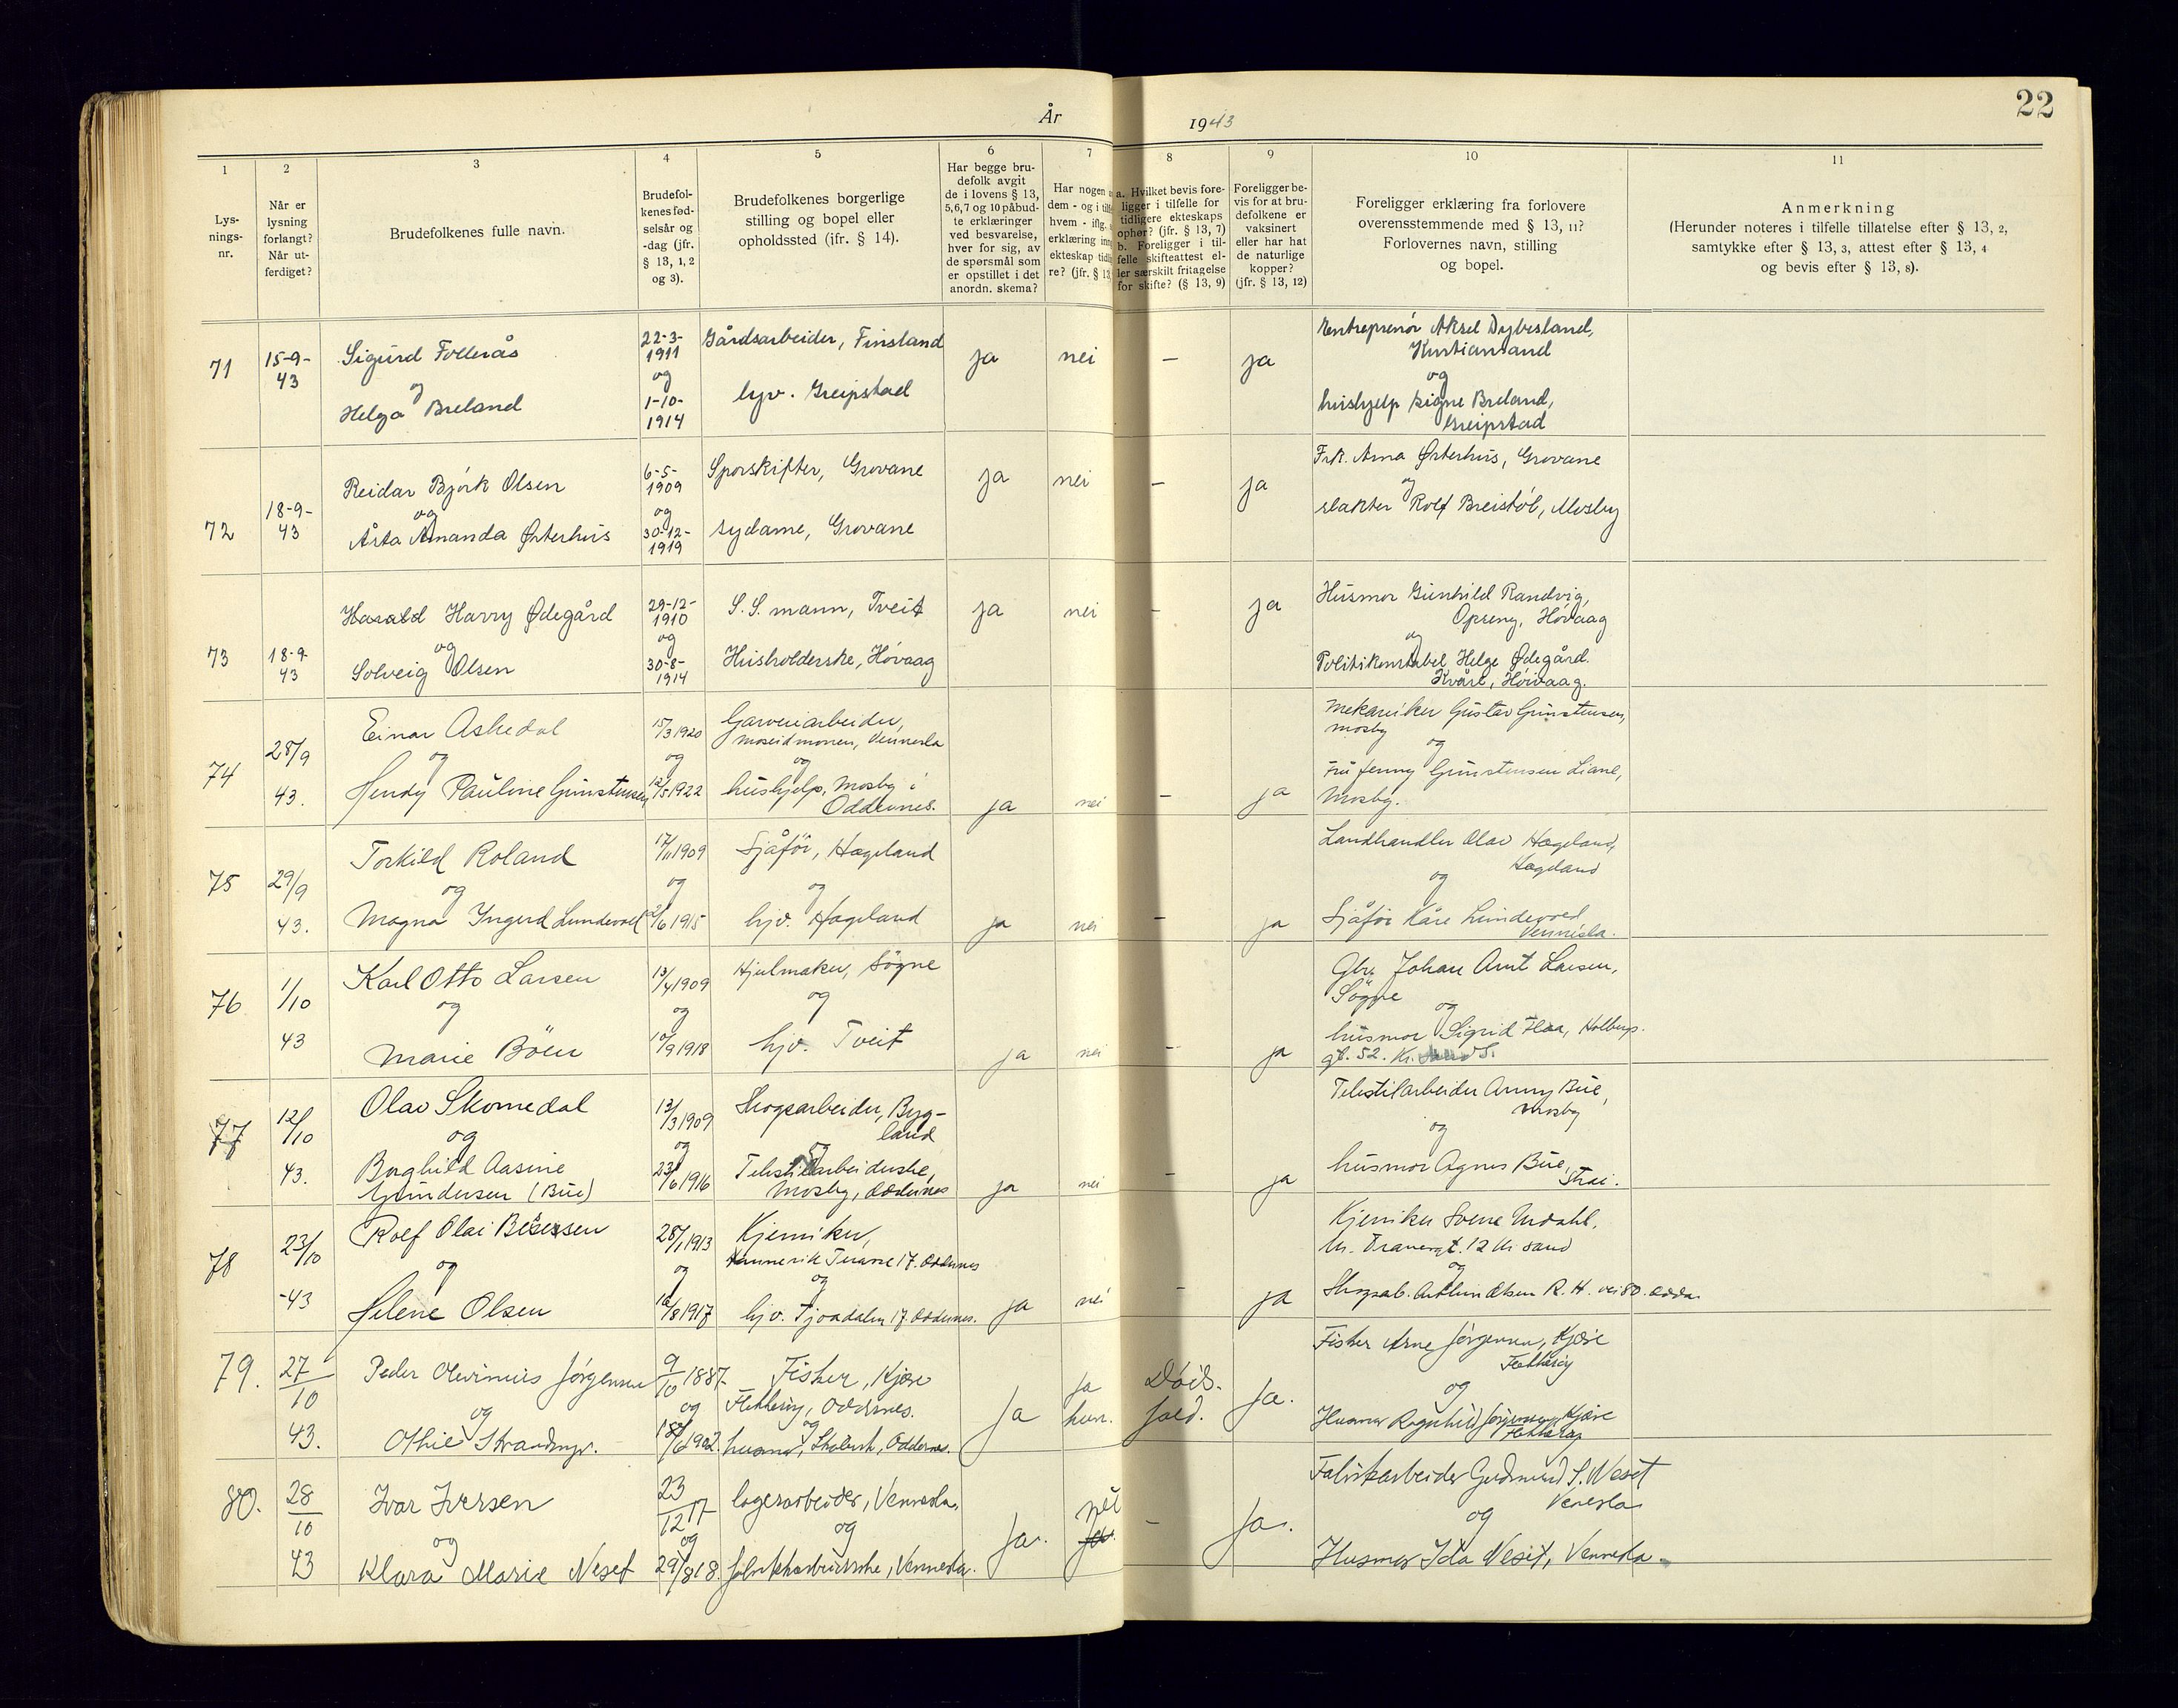 22
År 1943
1 2 3 4 5 6 7 8 9 10 11
Lys-
nings-
nr.
Når er
lysning
forlangt?
Når ut-
ferdiget?
Brudefolkenes fulle navn.
Brudefol-
kenes fød-
selsår og
-dag (jfr.
§ 13, 1, 2
og 3).
Brudefolkenes borgerlige
stilling og bopel eller
opholdssted (jfr. § 14).
Har begge bru-
defolk avgit
de i lovens § 13,
5,6,7 og 10 påbud-
te erklæringer
ved besvarelse,
hver for sig, av
de spørsmål som
er opstillet i det
anordn. skema?
Har nogen
dem - og i
hvem - iflg.
erklæring
ekteskap
re? (jfr. § 13
a. Hvilket bevis fore-
ligger i tilfelle for
tidligere ekteskaps
ophør? (jfr. § 13, 7)
b. Foreligger i til-
felle skifteattest el-
ler særskilt fritagelse
for skifte? (§ 13, 9)
Foreligger be-
vis for at bru-
defolkene er
vaksinert
eller har hat
de naturlige
kopper?
(jfr. § 13, 12)
Foreligger erklæring fra forlovere
overensstemmende med § 13, 11?
Forlovernes navn, stilling
og bopel.
Anmerkning
(Herunder noteres i tilfelle tillatelse efter § 13, 2,
samtykke efter § 13, 3, attest efter § 13, 4
og bevis efter § 13, 8).
71
15-9-
43
Sigurd
og
Helga Breland
22-3-
1911
og
1-10-
1914
Gårdsarbeider, Finsland
Greipstad
ja nei – ja
Aksel Dybesland,
Kristiansand
og
hushjelp Signe Breland,
Greipstad
72
18-9-
43
Reidar Bjørk Olsen
og
Asta Amanda Østerhus
6-5-
1909
og
30-12-
1919
Sporskifter, Grovane
sydame, Grovane
ja nei – ja
Frk. Anna Østerhus, Grovane
og
slakter Rolf Breistøl, Mosby
73
18-9-
43
Harald Harry Ødegård
og
Solveig Olsen
29-12-
1910
og
30-8-
1914
S.S. mann, Tveit
Husholderske, Høvaag
ja nei – ja
Husmor Gunhild Randvig,
Høvaag
og
Politikonstabel Helge Ødegård.
Kvåse, Høivaag.
74
28/9
43.
Einar Askedal
og
Pauline Gunstensen
15/3 1920
og
12/5 1922
Garveriarbeider,
Moseidmoen, Vennesla
og
hushjelp, Mosby i
Oddernes.
ja nei – ja
Mekaniker Gustav Gunstensen,
Mosby
og
Fru Jenny Gunstensen Liane,
Mosby.
75
29/9
43.
Torkild Roland
og
Magna Ingerd Lundevold
17/11 1909
og
2/6 1915
Sjåfør, Hægeland
og
hjv. Hægeland
ja nei – ja
Landhandler Olav Hægeland,
Hægeland
og
Sjåfør Kåre Lundevold,
Vennesla.
76
1/10
43
Karl Otto Larsen
og
Marie Böen
13/4 1909
og
10/9 1918
Hjulmaker, Søgne
og
hjv. Tveit
ja nei – ja
Gbr. Johan Arnt Larsen,
Søgne
og
husmor Sigrid Flaa, Holbergs
gt. 52. Kr. sand S.
77
12/10
43.
Olav Skomedal
og
Borghild Aasine
Gundersen (Bue)
13/3 1909
og
23/6 1916
Skogsarbeider, Byg-
land
og
Tekstilarbeiderske,
Mosby, Oddernes
ja nei – ja
Tekstilarbeider Arny Bue,
Mosby
og
husmor Agnes Bue,
Strai.
78
23/10
-43
Rolf Olai
og
Helene Olsen
28/1 1913
og
/8 1917
Kjemiker,
Terasse 17. Oddernes
og
hjv. Tjosdalen 17. Oddernes.
ja nei – ja
Kjemiker Sverre Urdahl,
gt. 12 Kr. sand
og
Olsen R. H. vei 80. Odda.
79.
27/10
43.
Peder Olevinius Jørgensen
og
Othie
9/10 1887.
og
1902.
Fisker, Kjøre
Flekkerøy, Oddernes.
og
husmor, Oddernes.
Ja
Ja
hun.
Ja.
Fisker Arne Jørgensen, Kjøre
Flekkerøy
og
Husmor Ragnhild Jørgensen, Kjøre
Flekkerøy
80.
28/10
43
Ivar Iversen
og
Klara Marie Neset
23/12 17
og
29/8 18.
lagerarbeider, Vennesla,
og
fabrikkarbeiderske, Vennesla.
Ja.
nei
ja.
–
Ja.
Fabrikarbeider Gudmund S. Neset
Vennesla
og
Husmor Ida Neset, Vennesla.